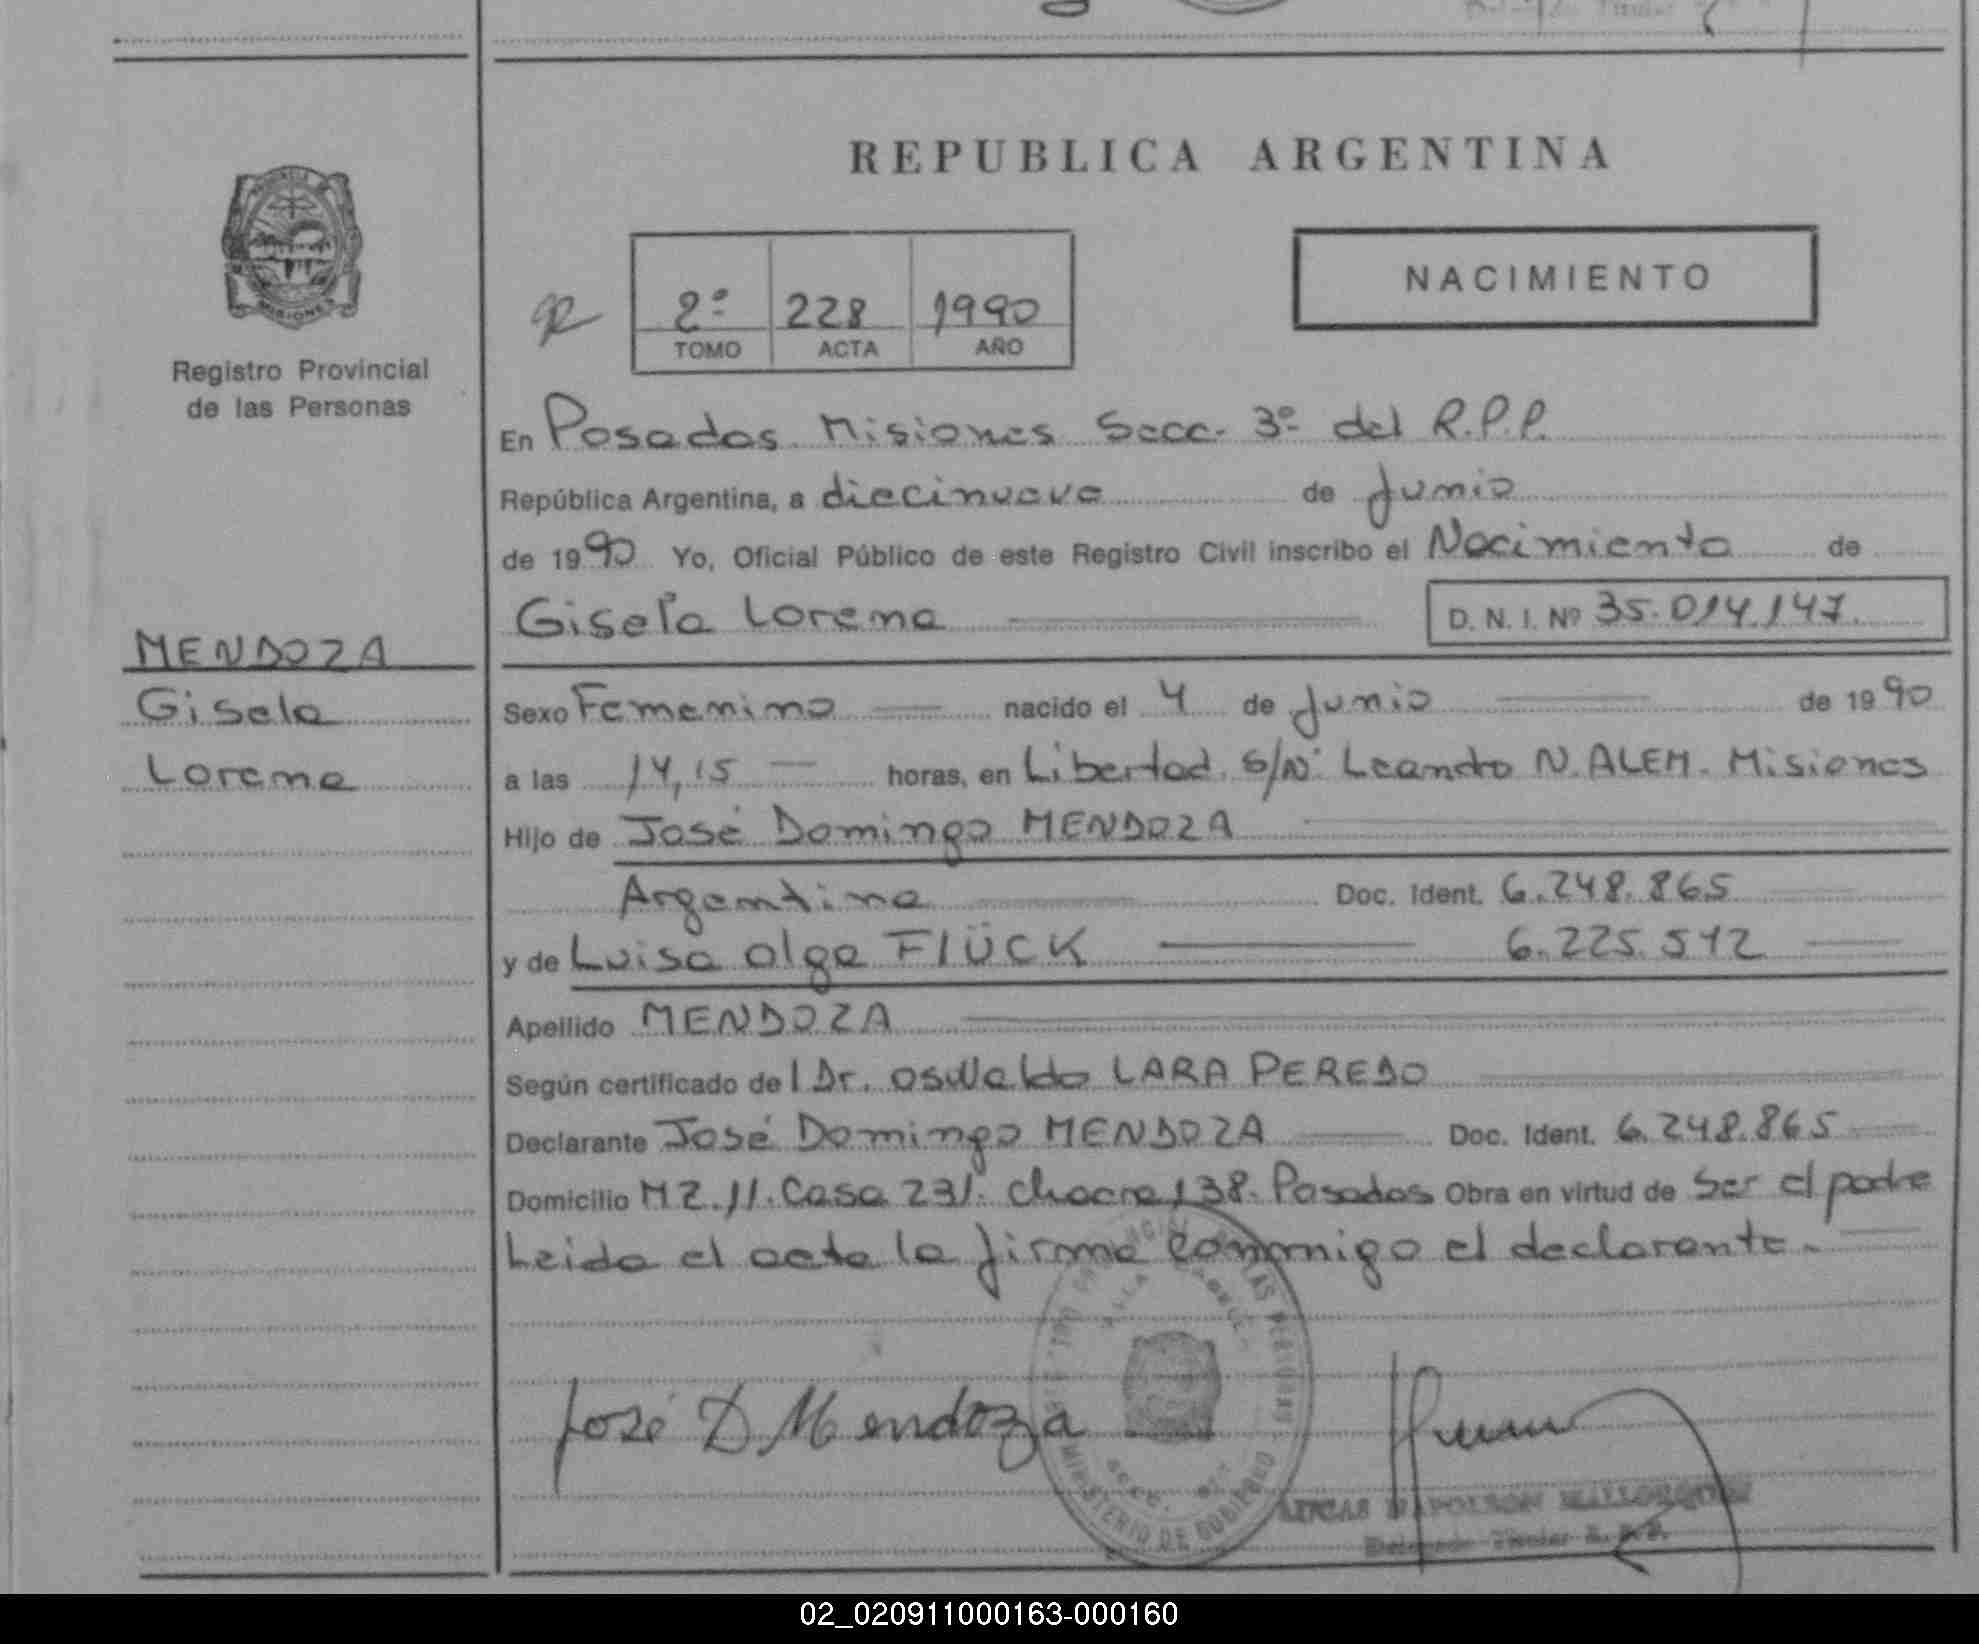 REPUBLICA ARGENTINA
NACIMIENTO
2º 228 1990
TOMO ACTA AÑO
Registro Provincial
de las Personas
En Posadas Misiones Secc. 3º del R.P.P.
República Argentina, a diecinueve de Junio
de 1990 Yo, Oficial Público de este Registro Civil inscribo el Nacimiento de
Gisela Lorena D. N. I. Nº 35.014.147
MENDOZA
Gisela
Lorena
Sexo Femenino nacido el 4 de Junio de 1990
a las 14,15 horas, en Libertad S/Nº Leandro N. ALEM. Misiones
Hijo de José Domingo MENDOZA
Argentina Doc. Ident. 6.248.865
y de Luisa Olga FLÜCK 6.225.512
Apellido MENDOZA
Según certificado del Dr. Osvaldo LARA PEREDO
Declarante José Domingo MENDOZA Doc. Ident. 6.248.865
Domicilio MZ.11. Casa 231. Chacra 138. Posadas Obra en virtud de ser el padre
Leida el acta la firma conmigo el declarante.
José D Mendoza
MINISTERIO DE GOBIERNO
LUCAS NAPOLEON
Delegado Titular R. P. P.
02_020911000163-000160